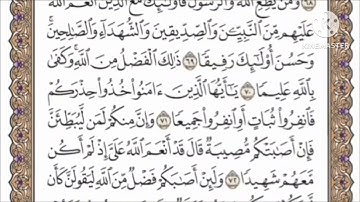 وَمَن يُطِعِ ٱللَّهَ وَٱلرَّسُولَ فَأُو۟لَٰٓئِكَ مَعَ ٱلَّذِينَ أَنْعَمَ ٱللَّهُ
عَلَيْهِم مِّنَ ٱلنَّبِيِّـۧنَ وَٱلصِّدِّيقِينَ وَٱلشُّهَدَآءِ وَٱلصَّٰلِحِينَ ۚ
وَحَسُنَ أُو۟لَٰٓئِكَ رَفِيقًا ٦٩ ذَٰلِكَ ٱلْفَضْلُ مِنَ ٱللَّهِ ۚ وَكَفَىٰ
بِٱللَّهِ عَلِيمًا ٧٠ يَٰٓأَيُّهَا ٱلَّذِينَ ءَامَنُوا۟ خُذُوا۟ حِذْرَكُمْ
فَٱنفِرُوا۟ ثُبَاتٍ أَوِ ٱنفِرُوا۟ جَمِيعًا ٧١ وَإِنَّ مِنكُمْ لَمَن لَّيُبَطِّئَنَّ
فَإِنْ أَصَٰبَتْكُم مُّصِيبَةٌ قَالَ قَدْ أَنْعَمَ ٱللَّهُ عَلَىَّ إِذْ لَمْ أَكُن
مَّعَهُمْ شَهِيدًا ٧٢ وَلَئِنْ أَصَٰبَكُمْ فَضْلٌ مِّنَ ٱللَّهِ لَيَقُولَنَّ كَأَن
KINEMASTER